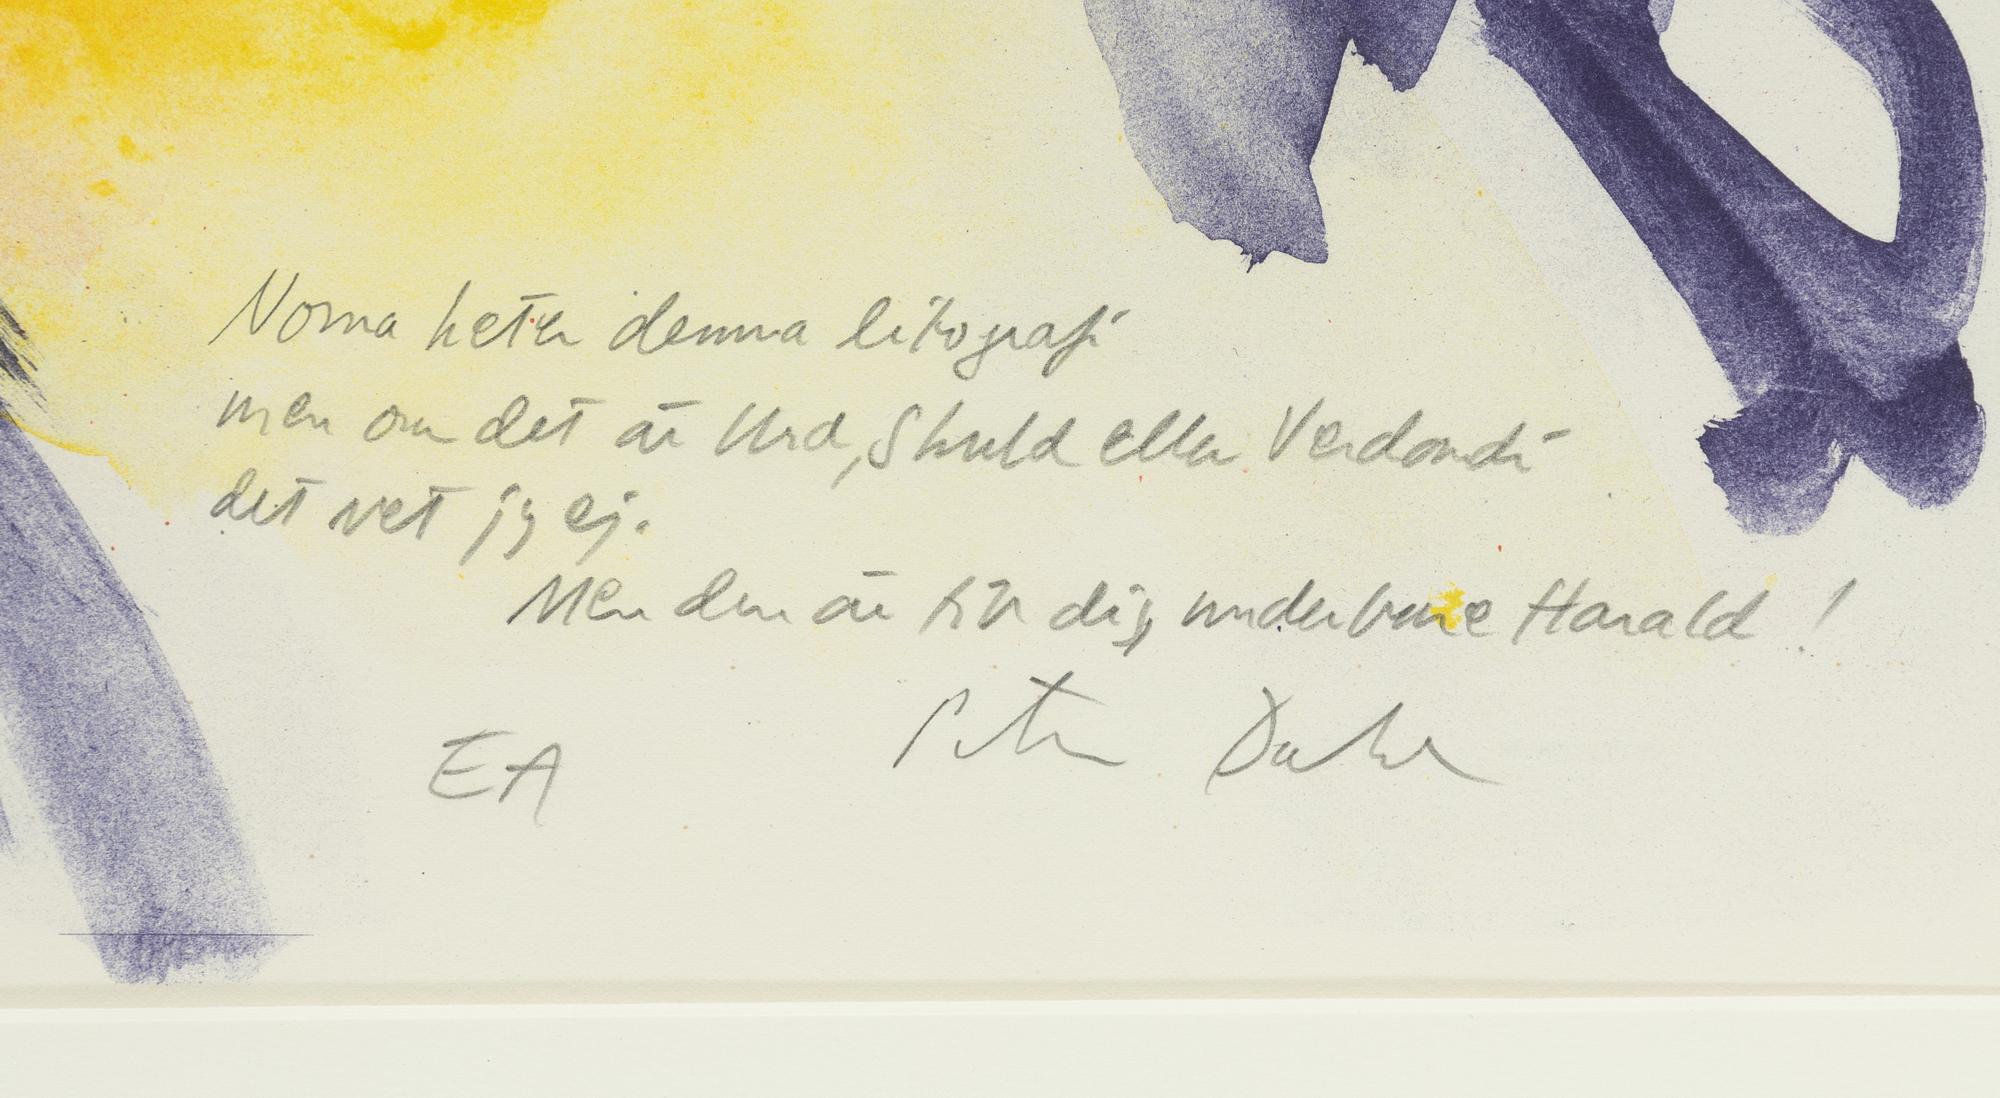 Norna heter denna litografi
men om det är Urd, Skuld eller Verdandi
det vet jag ej.
Men den är för dig, underbare Harald !
EA Peter Dahl